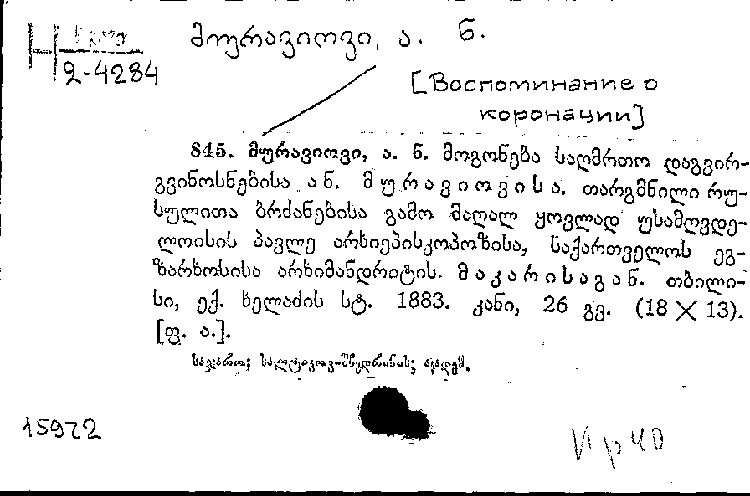 მურავიოვი, ა. ნ.
2-4284
[Воспоминание о
коронации]
845. მურავიოვი, ა. ნ. მოგონება საღმრთო დაგვირ-
გვინოსნებისა ან. მურავიოვისა. თარგმნილი რუ-
სულითა ბრძანებისა გამო მაღალ ყოვლად უსამღვდე-
ლოისის პავლე არხიეპისკოპოზისა, საქართველოს ეგ-
ზარხოსისა არხიმანდრიტის. მაკარისაგან. თბილი-
სი, ექ. ხელაძის სტ. 1883. კანი, 26 გვ. (18 X 13).
[ფ. ა.].
საჯარო; სალტიკოვ-შჩედრინის; აკადემ.
15972